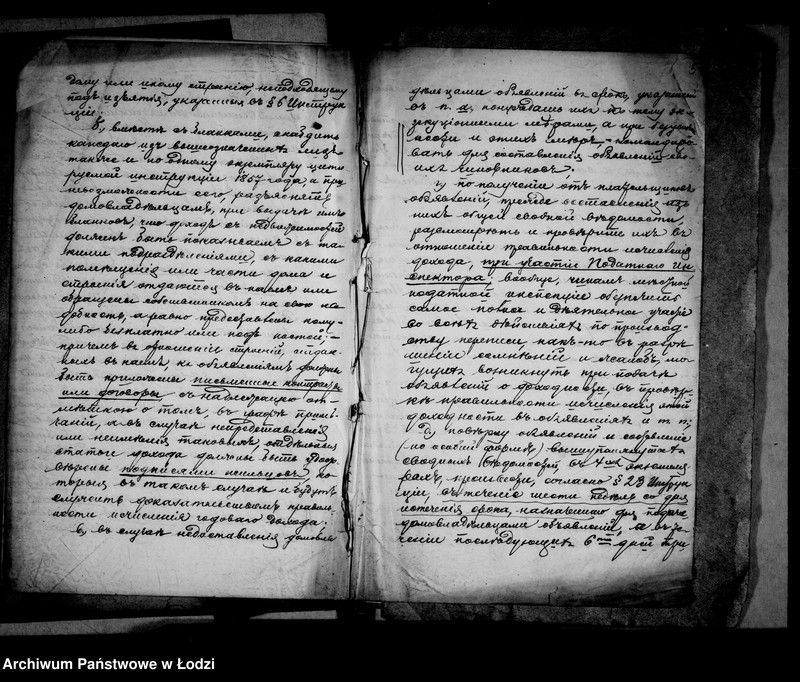 дому или иному строенію, неподходящему
подъ изъятія, указанныя въ § 6 Инструк
ціи;
б, вмѣстѣ съ бланками, снабдить
каждаго изъ вышеозначенныхъ лицъ
также и по одному экземпляру цити
руемой инструкціи 1867 года, а при
невозможности сего, разъяснять
домовладѣльцамъ, при выдачѣ имъ
бланковъ, что доходъ съ недвижимостей
долженъ быть показываемъ съ та-
кими подраздѣленіями, съ какими
помѣщенія или части дома и
строенія отдаются въ наемъ или
обращены собственникомъ на свою на
добность, а равно предоставлены кому-
либо безплатно или подъ постой;-
причемъ въ отношеніи строеній, отдан-
ныхъ въ наемъ, къ объявленіямъ должны
быть приложены письменные контракты
или договоры съ надлежащею от-
мѣткою о томъ, въ графѣ примѣ-
чаній, а въ случаѣ непредставленія
или неимѣнія таковыхъ, отдѣльныя
статьи дохода должны быть удосто-
вѣрены подписями жильцовъ, ко-
торыя въ такомъ случаѣ и будутъ
служить доказательствомъ правиль-
ности исчисленія годоваго дохода;
в, въ случаѣ недоставленія домовла
дѣльцами объявленій въ срокъ, указанный
въ п. а, понуждать ихъ къ тому эк-
зекуціонными мѣрами, а при безуспѣш
ности и этихъ мѣръ,- командиро
вать для составленія объявленій сво
ихъ чиновниковъ;
г) по полученіи отъ плательщиковъ
объявленій, прежде составленія изъ
нихъ общей сводной вѣдомости,
разсмотрѣть и провѣрить ихъ въ
отношеніи правильности исчисленія
дохода, при участіи Податнаго Ин
спектора; вообще, чинамъ мѣстной
податной инспекціи обезпечить
самое полное и дѣятельное участіе
во всѣхъ дѣйствіяхъ по производ-
ству переписи, какъ-то въ разрѣ
шеніи сомнѣній и жалобъ, мо-
гущихъ возникнуть при подачѣ
объявленій о доходности, въ провѣр
кѣ правильности исчисленія этой
доходности въ объявленіяхъ и т. п;
д) повѣрку объявленій и составленіе
(по особой формѣ) вышеупомянутыхъ
сводныхъ вѣдомостей, въ 4хъ экземпля
рахъ, произвести, согласно § 23 Инструк
ціи, въ теченіе шести недѣль со дня
истеченія срока, назначеннаго для подачи
домовладѣльцами объявленій, а въ те
ченіи послѣдующихъ 6ти дней при
Archiwum Państwowe w Łodzi